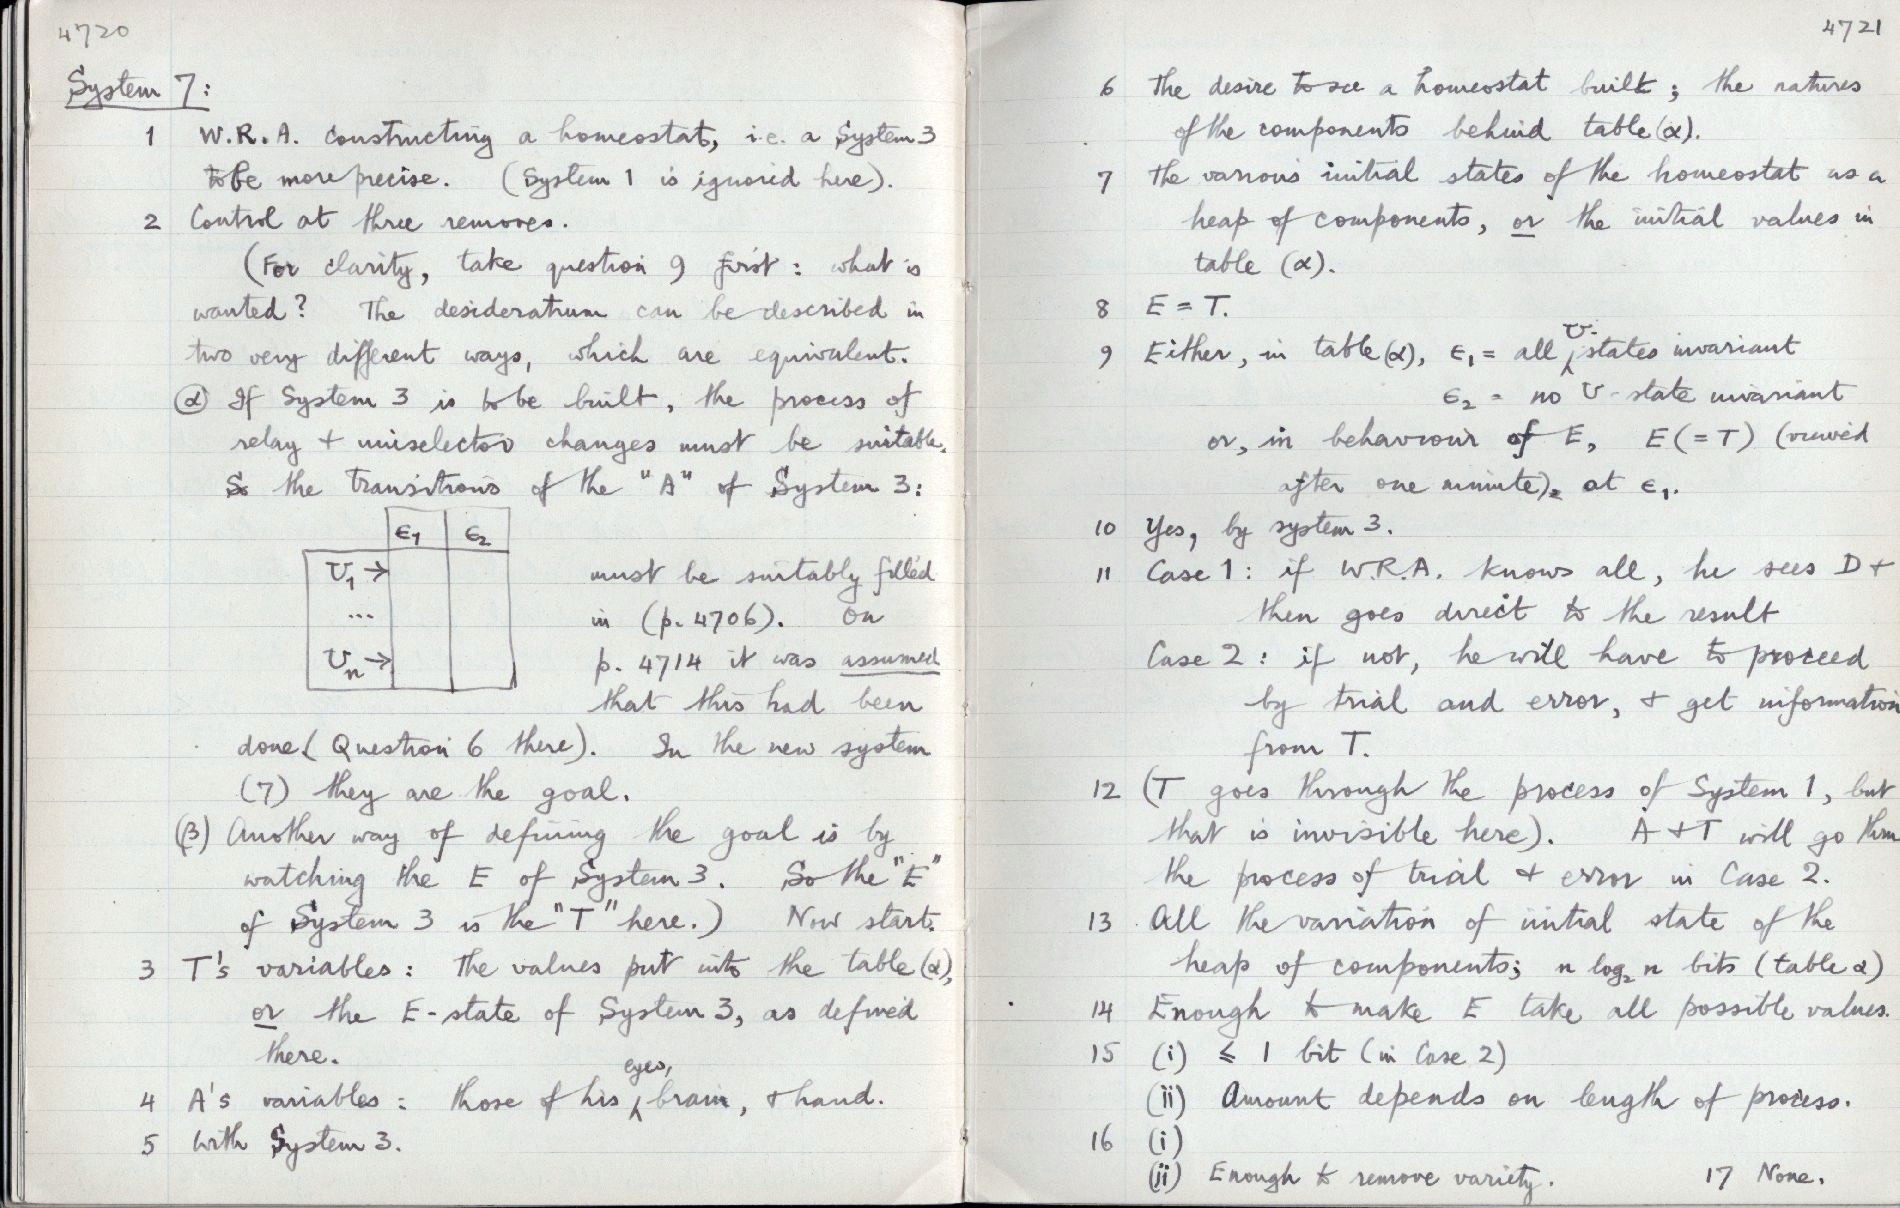 4720
System 7:
1 W.R.A. constructing a homeostat, i.e. a System 3
to be more precise. (System 1 is ignored here).
2 Control at three removes.
(For clarity, take question 9 first: what is
wanted? The desideratum can be described in
two very different ways, which are equivalent.
(α) If System 3 is to be built, the process of
relay + uniselector changes must be suitable.
So the transitions of the "A" of System 3:
ϵ1 ϵ2
U1 → must be suitably filled
... in (p. 4706). On
Un → p. 4714 it was assumed
that this had been
done (Question 6 there). In the new system
(7) they are the goal.
(β) Another way of defining the goal is by
watching the E of System 3. So the "E"
of System 3 is the "T" here.) Now start.
3 T's variables: The values put into the table (α),
or the E-state of System 3, as defined
there.
eyes,
4 A's variables: those of his brain, + hand.
5 With System 3.
4721
6 The desire to see a homeostat built; the natures
of the components behind table (α).
7 The various initial states of the homeostat as a
heap of components, or the initial values in
table (α).
8 E = T.
U-
9 Either, in table (α), ϵ1 = all states invariant
ϵ2 = no U-state invariant
or, in behaviour of E, E (= T) (viewed
after one minute), at ϵ1.
10 Yes, by system 3.
11 Case 1: if W.R.A. knows all, he sees D +
then goes direct to the result
Case 2: if not, he will have to proceed
by trial and error, + get information
from T.
12 (T goes through the process of System 1, but
that is invisible here). A + T will go thru
the process of trial + error in Case 2.
13 All the variation of initial state of the
heap of components; n log2 n bits (table α)
14 Enough to make E take all possible values.
15 (i) ≤ 1 bit (in Case 2)
(ii) Amount depends on length of process.
16 (i)
(ii) Enough to remove variety. 17 None.